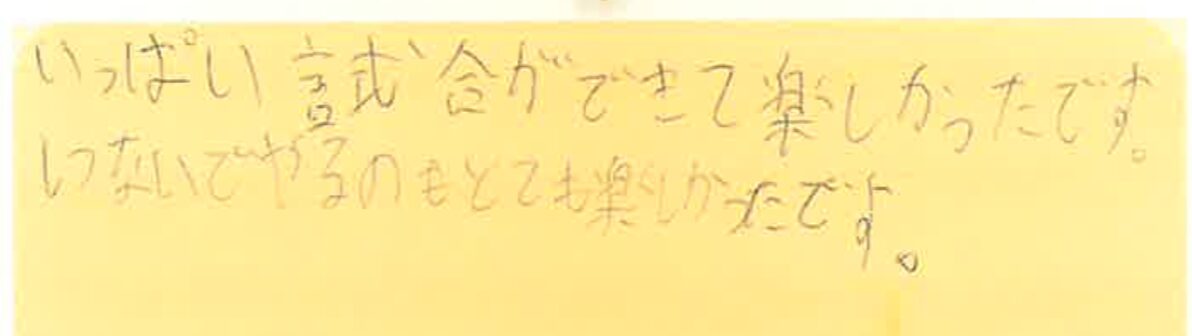 いっぱい試合ができて楽しかったです。
しつないでやるのもとても楽しかったです。